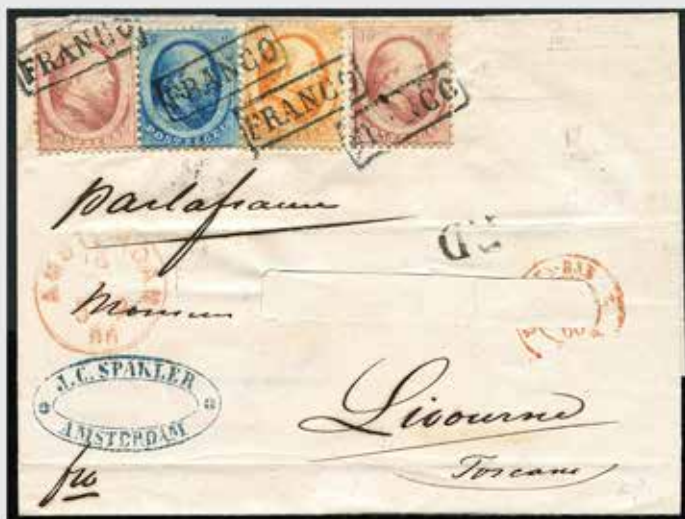 FRANCO FRANCO FRANCO FRANCO
POSTZEGEL
par la france
AMSTERDAM
66
Monsieur
J.C. SPAKLER
AMSTERDAM
Livourne
Toscane
fro